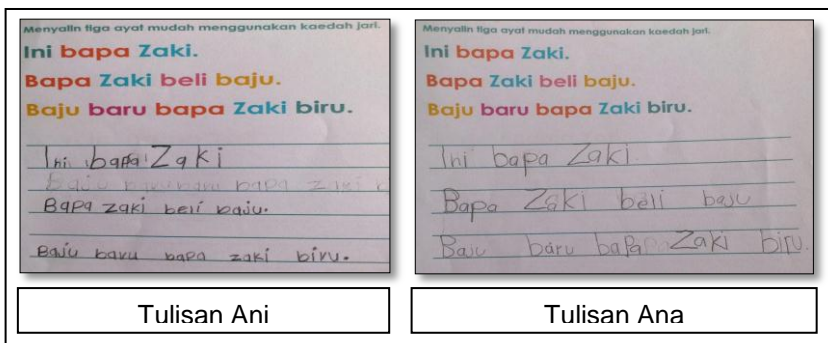 Menyalin tiga ayat mudah menggunakan kaedah jari.
Ini bapa Zaki.
Bapa Zaki beli baju.
Baju baru bapa Zaki biru.
Ini bapa Zaki
Bapa zaki beli baju.
Baju baru bapa zaki biru.
Tulisan Ani
Menyalin tiga ayat mudah menggunakan kaedah jari.
Ini bapa Zaki.
Bapa Zaki beli baju.
Baju baru bapa Zaki biru.
Ini bapa Zaki.
Bapa Zaki beli baju
Baju baru bapa Zaki biru.
Tulisan Ana